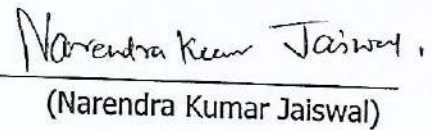 Narendra Kumar Jaiswal.
(Narendra Kumar Jaiswal)